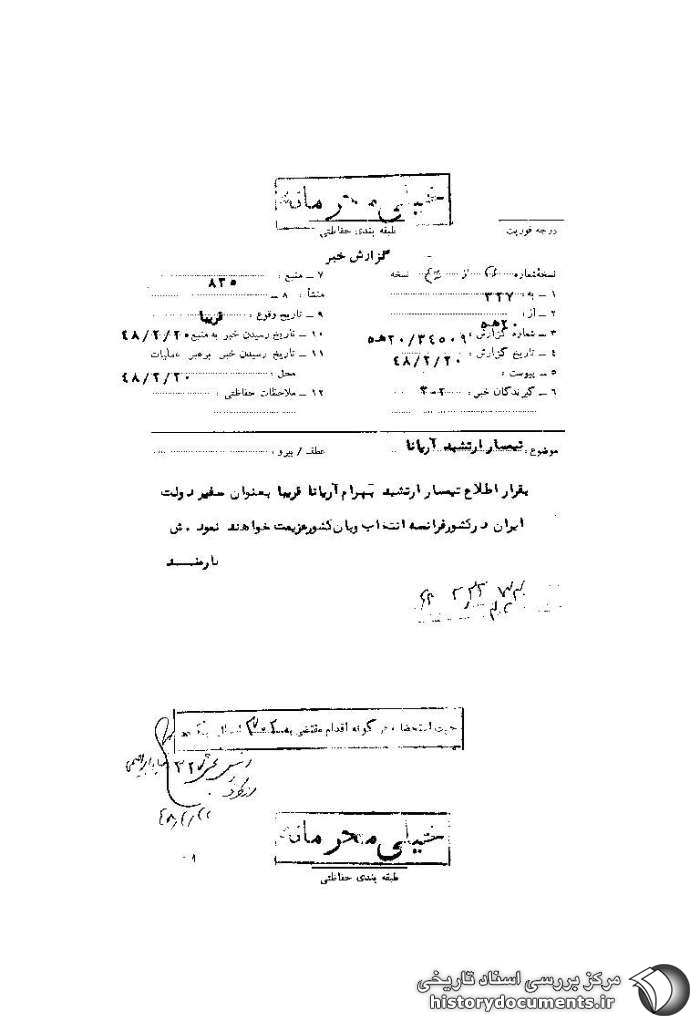 خیلی محرمانه
طبقه بندی حفاظتی
درجه فوریت
گزارش خبر
نسخهٔ شماره از نسخه
۱ ـ به : ۳۲۷
۲ ـ از : ۲۰ ه‍ ۵
۳ ـ شماره گزارش : ۲۰/۳۴۵۰۹ ه‍ ۵
۴ ـ تاریخ گزارش : ۴۸/۲/۲۰
۵ ـ پیوست :
۶ ـ گیرندگان خبر : ۳۰۲
۷ ـ منبع : ۸۳۵
۸ ـ منشأ :
۹ ـ تاریخ وقوع : قریبا
۱۰ ـ تاریخ رسیدن خبر به منبع ۴۸/۲/۲۰
۱۱ ـ تاریخ رسیدن خبر برهبر عملیات
محل : ۴۸/۲/۲۰
۱۲ ـ ملاحظات حفاظتی :
موضوع : تیمسار ارتشبد آریانا
عطف / پیرو :
بقرار اطلاع تیمسار ارتشبد بهرام آریانا قریبا بعنوان سفیر دولت
ایران در کشور فرانسه انتخاب وبان کشور عزیمت خواهند نمود . ش
بارمند
جهت استحضار هر گونه اقدام مقتضی به
۳۲۷
خیلی محرمانه
طبقه بندی حفاظتی
مرکز بررسی اسناد تاریخی
historydocuments.ir